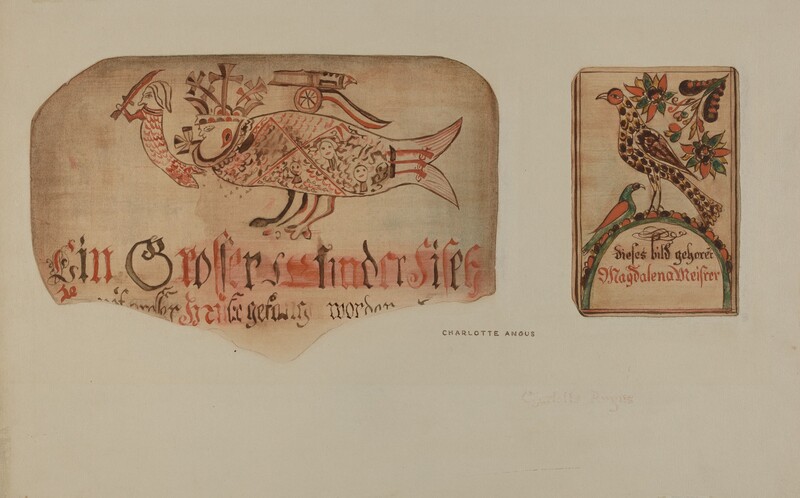 Ein Grosser Wunder Fisch
worden
dieses bild gehoret
Magdalena Meister
CHARLOTTE ANGUS
Charlotte Angus